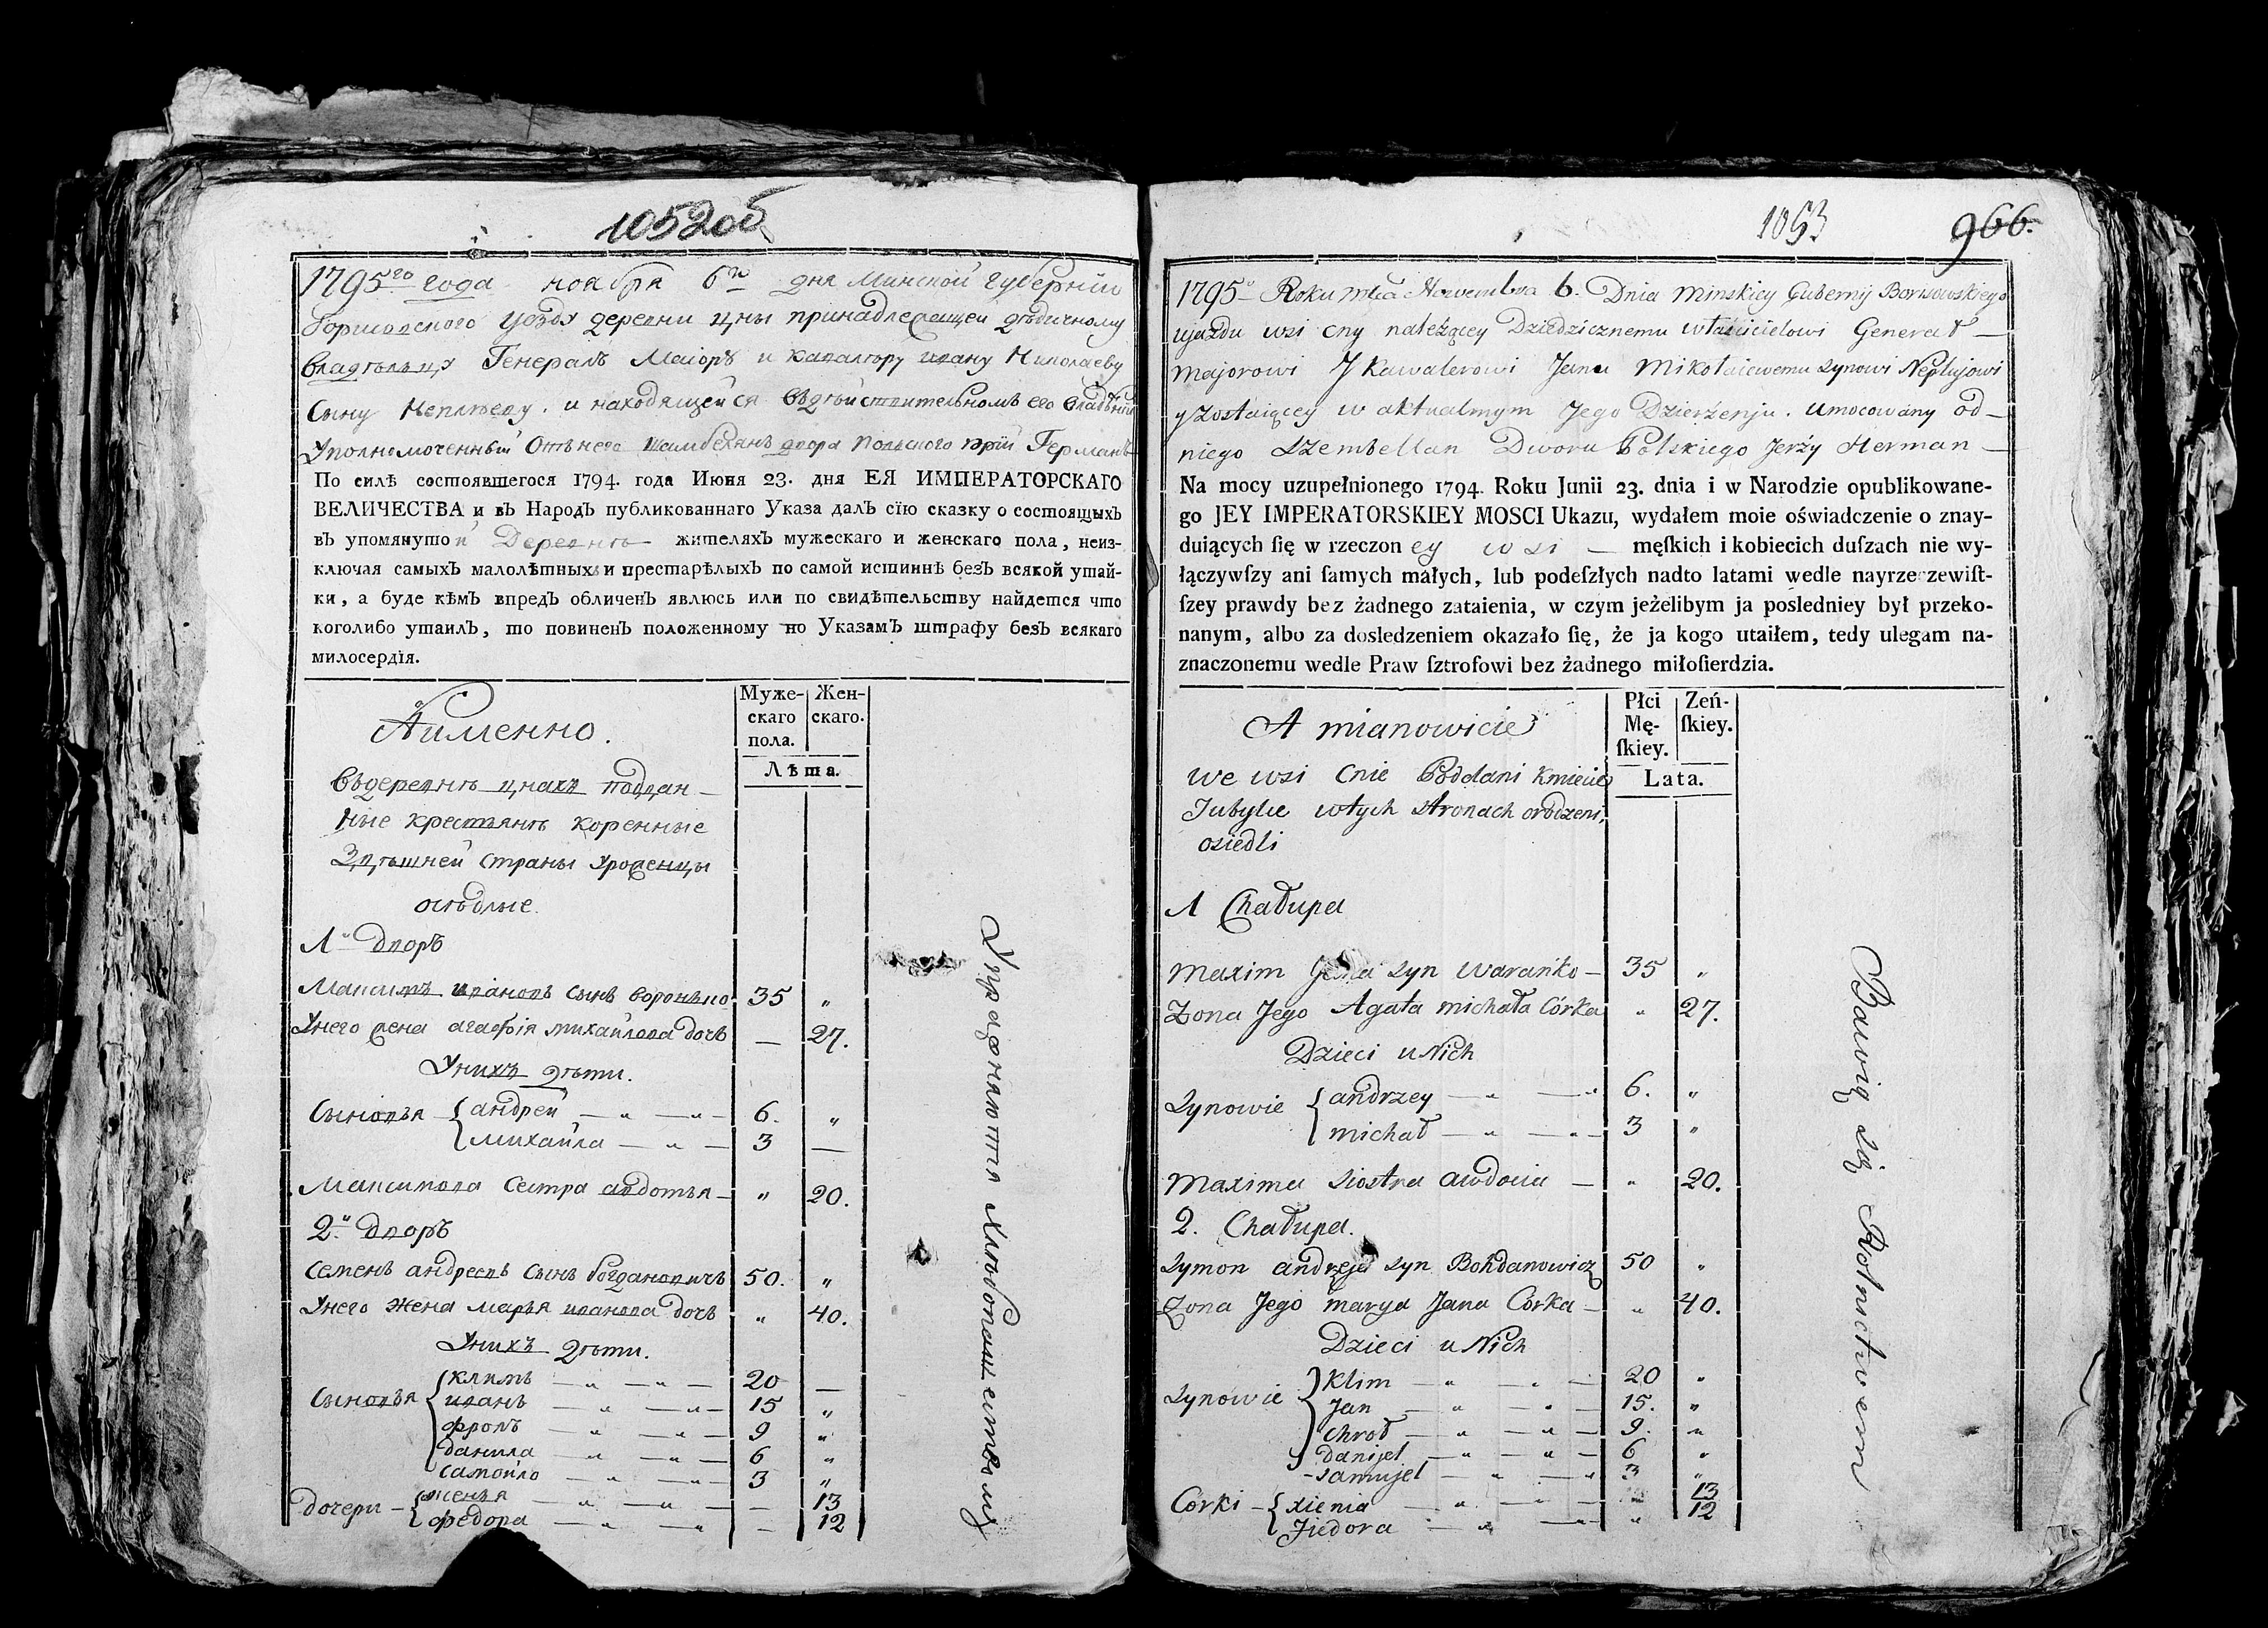 1052об
1795го года ноября 6го дня Минской Губерніи
Борисовского уезду деревни Цны принадлежащеи дѣдичному
владѣльцу Генералъ Маіору и кавалеру Ивану Николаеву
Сыну Неплюеву. и находящейся въдѣйствительномъ его владѣніи
Уполномоченный Отънего Шамбелянъ двора Польского Германъ
По силѣ состоявшегося 1794. года Июня 23. дня ЕЯ ИМПЕРАТОРСКАГО
ВЕЛИЧЕСТВА и въ Народъ публикованнаго Указа далъ сїю сказку о состоящыхъ
въ упомянутой Деревнѣ жителяхъ мужескаго и женскаго пола, неиз-
ключая самыхъ малолѣтныхъ и престарѣлыхъ по самой истиннѣ безъ всякой утай-
ки, а буде кѣмъ впредъ обличенъ явлюсь или по свидѣтельству найдется что
коголибо утаилъ, то повиненъ положенному по Указамъ штрафу безъ всякаго
милосердїя.
Муже-
скаго
пола.
Жен-
скаго.
Лѣта.
Аименно.
Въдеревнѣ Цнахъ поддан-
ные крестьянѣ коренные
Здѣшней страны уроженцы
осѣдлые.
1й дворъ
Максимъ Ивановъ сынъ Воронько 35 "
Унего жена агафія михайлова дочь — 27.
Унихъ дѣти.
Сыновья { андрей — " — " — 6. "
михайла — " — 3 —
Максимова Сестра авдотья — " 20.
2й дворъ
Семенъ андреевъ Сынъ богдановичъ 50. "
Унего жена марья иванова дочь " 40.
Унихъ дѣти.
Сыновья { климъ — " — " — 20 —
иванъ — " — " — 15 "
фролъ — " — " — 9 "
данила — " — " — 6 "
самойло — " — " — 3 "
дочери — { ксенья — " — " — — 13
федора — " — " — 12
Упражняются хлѣбопашествомъ
1053
966.
1795o Roku mca Nowembra 6. Dnia Minskiey Gubernij Borisowskiego
ujazdu wsi Cny należącey Dziedzicznemu właścicielowi Generał —
majorowi J Kawalerowi Jana Mikołaiewemu synowi Neplujowi
y zostaiącey w aktualnym Jego Dzierżenju. Umocowany od —
niego Szembellan Dworu Polskiego Jerży Herman —
Na mocy uzupełnionego 1794. Roku Junii 23. dnia i w Narodzie opublikowane-
go JEY IMPERATORSKIEY MOSCI Ukazu, wydałem moie oświadczenie o znay-
duiących ſię w rzeczoney wsi — męſkich i kobiecich duſzach nie wy-
łączywſzy ani ſamych małych, lub podeſzłych nadto latami wedle nayrzeczewiſt-
ſzey prawdy bez żadnego zataienia, w czym jeżelibym ja posledniey był przeko-
nanym, albo za dosledzeniem okazało ſię, że ja kogo utaiłem, tedy ulegam na-
znaczonemu wedle Praw ſztrofowi bez żadnego miłoſierdzia.
Płci
Mę-
ſkiey.
Zeń-
ſkiey.
Lata.
A mianowicie
we wsi Cnie Poddani Kmiecie
Tubylce wtych stronach orodzeni,
osiedli
1 Chałupa
Maxim Jana syn Warańko — 35 "
Zona Jego Agata michała Córka " 27.
Dzieci u Nich
Synowie { andrzey — " — " 6. "
michał — " — " — 3 "
Maxima siostra awdocia — " 20.
2. Chałupa.
Symon andrzeja syn Bohdanowicz 50 "
Zona Jego marya Jana Córka — " 40.
Dzieci u Nich
Synowie { Klim — " — " — 20 "
Jan — " — " — 15. "
Chroł — " — " — 9. "
Danijel — " — " — 6 "
Samujel — " — " 3 "
Córki — { xienia — " — " — " 13
Fiedora — " — " 12
Bawią się Rolnictwem